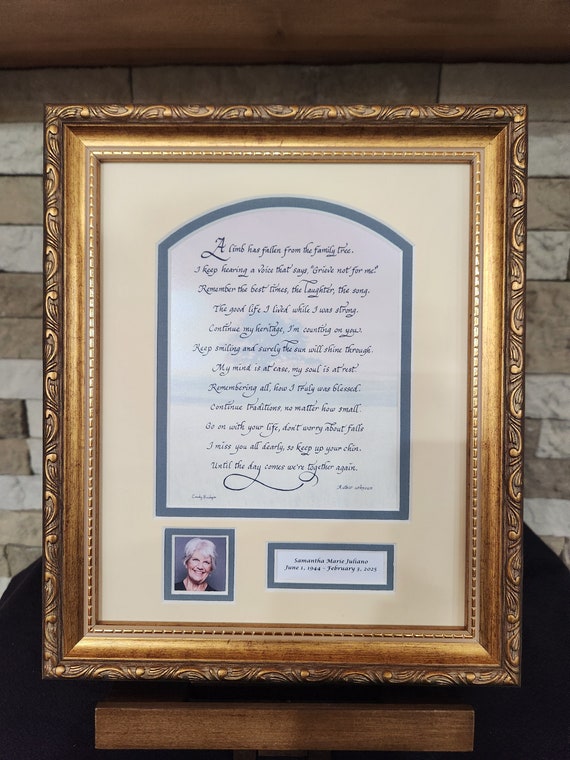 A limb has fallen from the family tree.
I keep hearing a voice that says, "Grieve not for me."
Remember the best times, the laughter, the song.
The good life I lived while I was strong.
Continue my heritage, I'm counting on you.
Keep smiling and surely the sun will shine through.
My mind is at ease, my soul is at rest
Remembering all, how I truly was blessed.
Continue traditions, no matter how small.
Go on with your life, don't worry about falls
I miss you all dearly, so keep up your chin.
Until the day comes we're together again.
Author unknown
Samantha Marie Juliano
June 1, 1944 - February 5, 2025